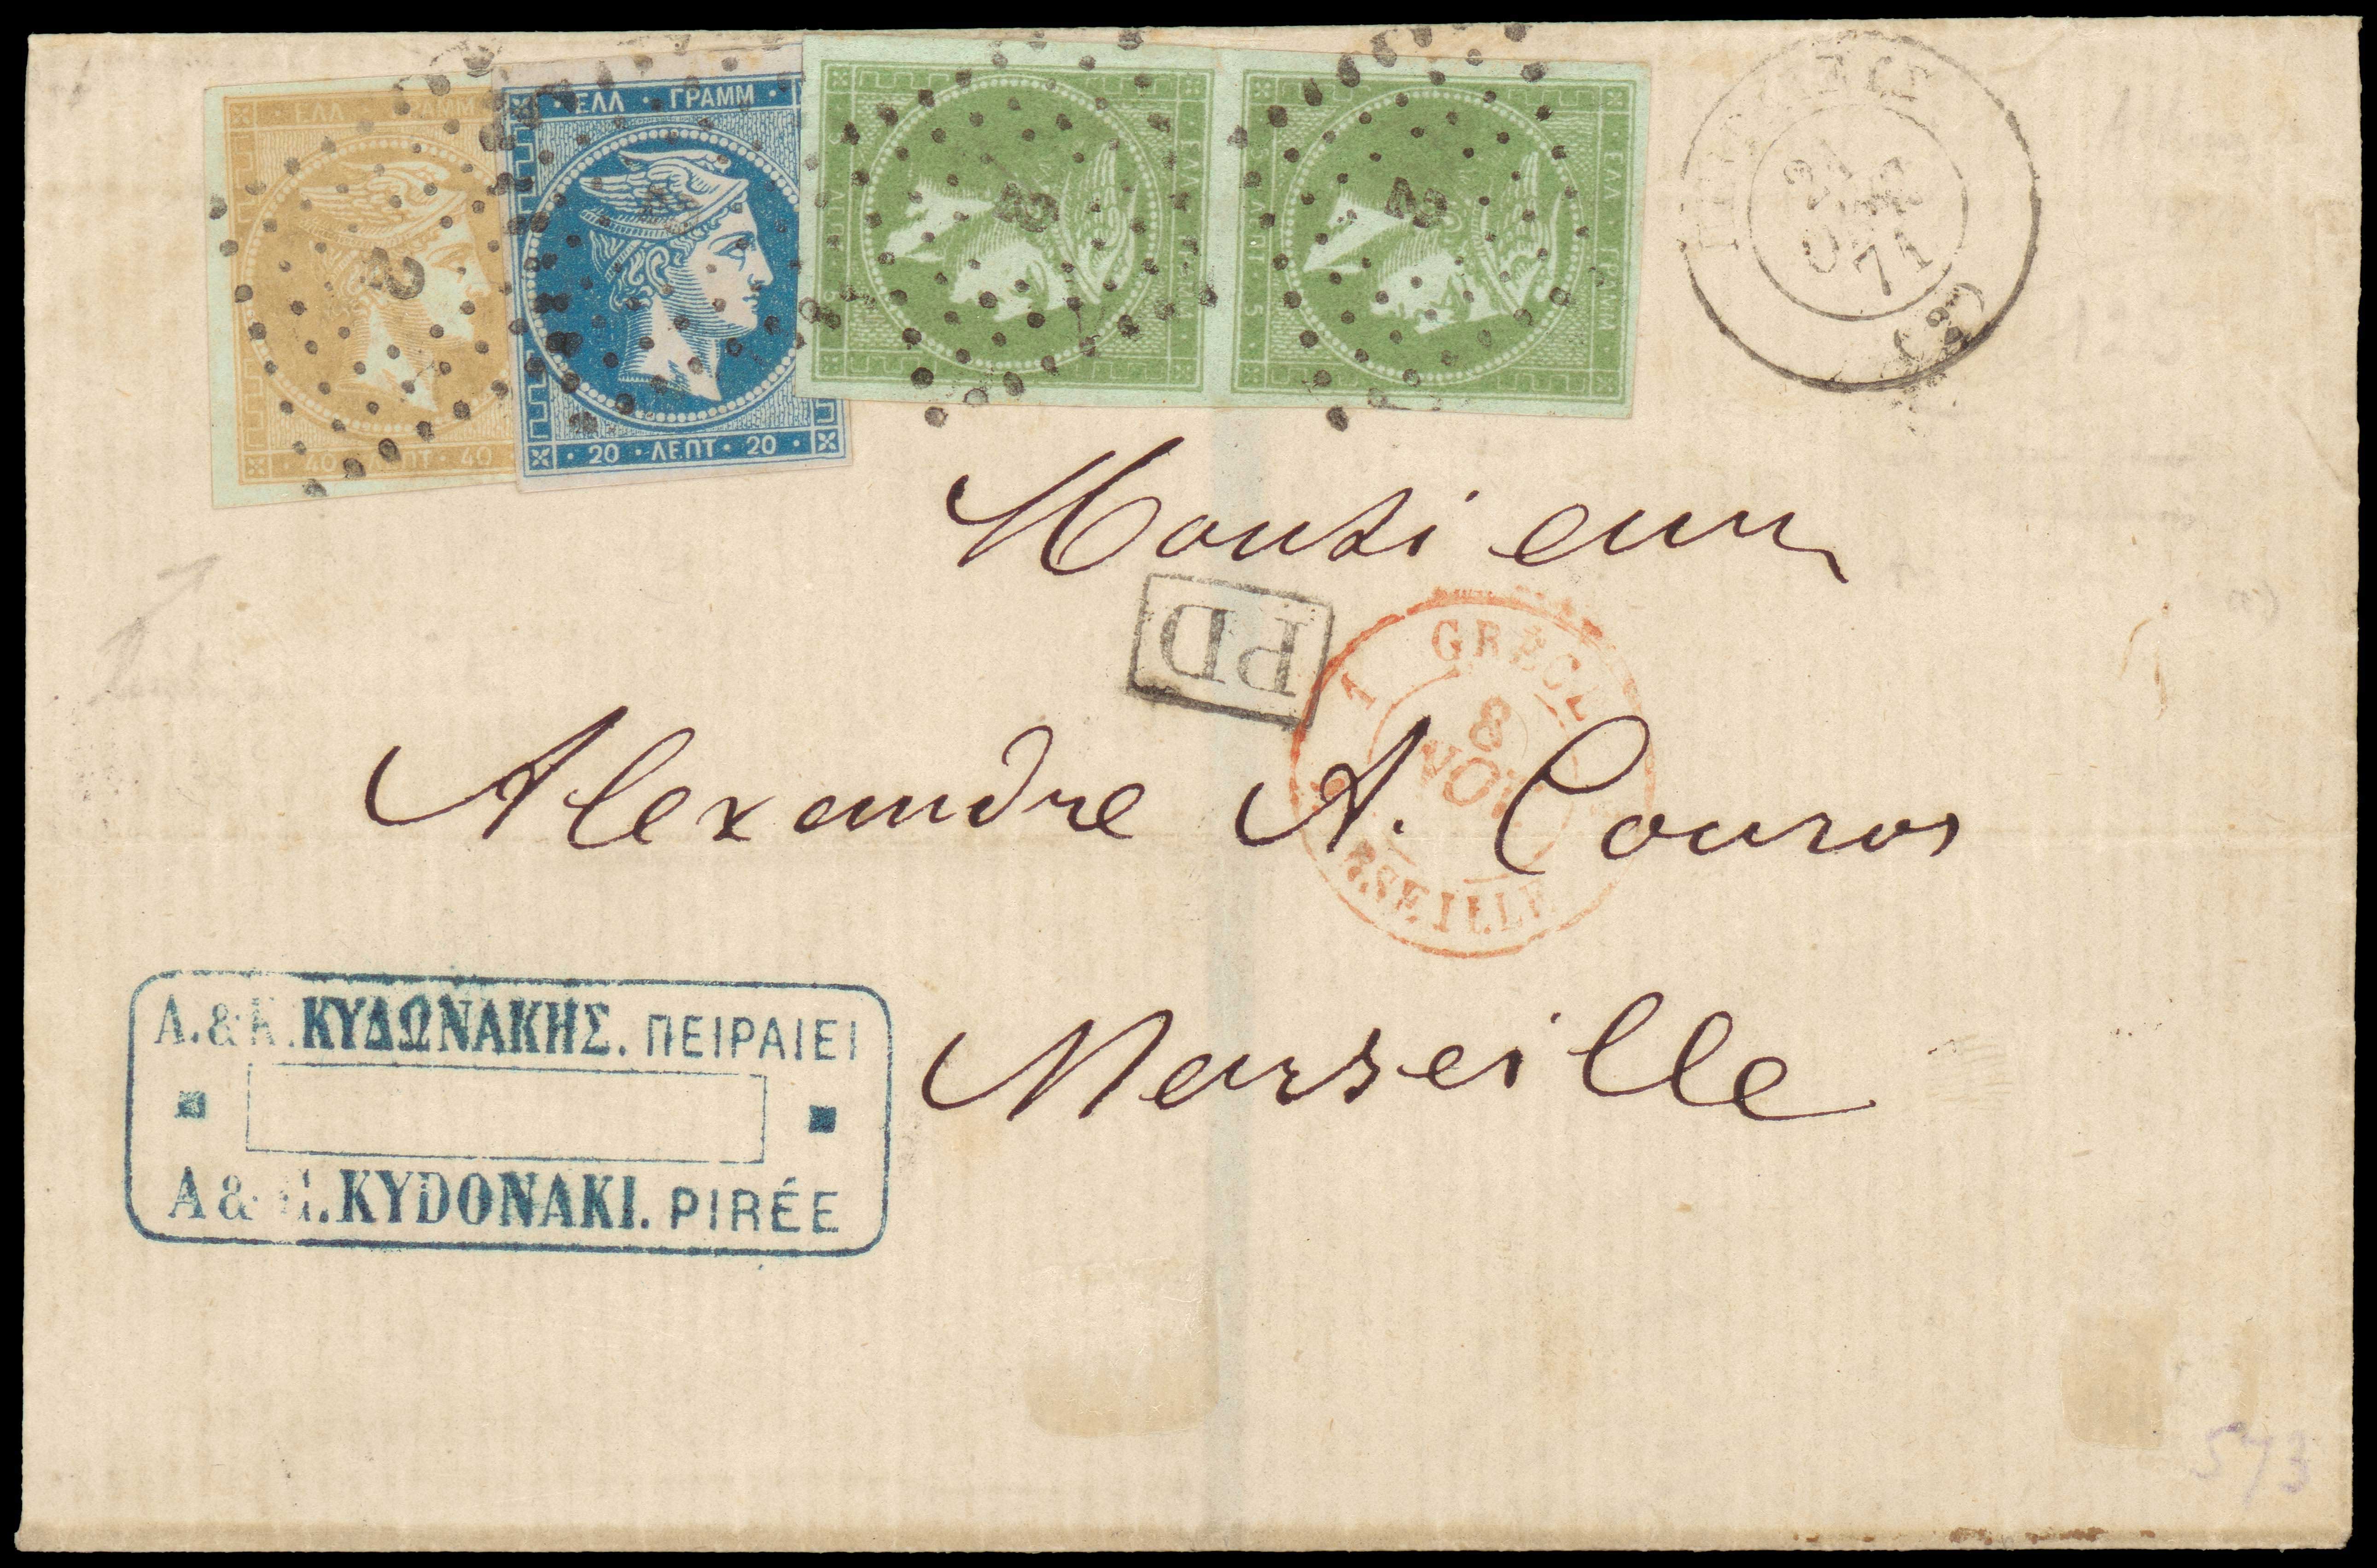 ΕΛΛ · ΓΡΑΜΜ
40 · ΛΕΠΤ · 40
ΕΛΛ · ΓΡΑΜΜ
20 · ΛΕΠΤ · 20
ΕΛΛ · ΓΡΑΜΜ
5 · ΛΕΠΤ · 5
ΕΛΛ · ΓΡΑΜΜ
5 · ΛΕΠΤ · 5
71
Monsieur
PD
GRECE
8
NOV
MARSEILLE
Alexandre A. Couros
Marseille
Α. & Κ. ΚΥΔΩΝΑΚΗΣ. ΠΕΙΡΑΙΕΙ
A & C. KYDONAKI. PIRÉE
573